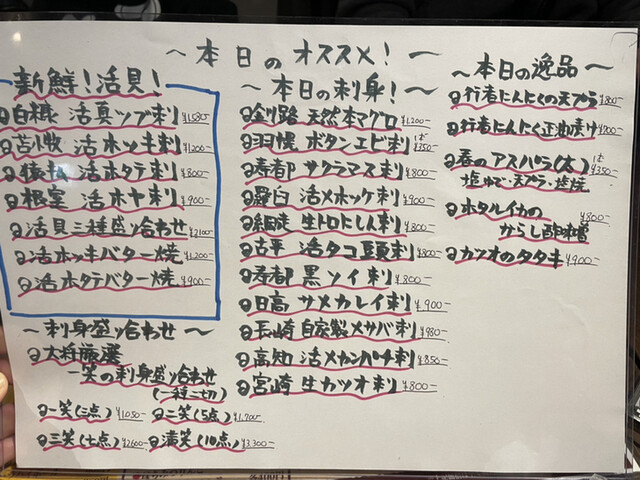 ～本日のオススメ！～
新鮮！活貝！
白糠 活真ツブ刺
苫小牧 活ホッキ刺 ¥1,200-
猿払 活ホタテ刺 ¥800-
根室 活ホヤ刺 ¥900-
活貝三種盛り合わせ ¥2,100-
活ホッキバター焼 ¥1,200-
活ホタテバター焼 ¥900-
～刺身盛り合わせ～
大将厳選
一笑の刺身盛り合わせ
(一種二切)
一笑(三点) ¥1,050- 二笑(5点) ¥1,700-
三笑(七点) ¥2,600- 満笑(10点) ¥3,300-
～本日の刺身！～
釧路 天然本マグロ ¥1,200-
羽幌 ボタンエビ刺 1本 ¥350-
寿都 サクラマス刺 ¥800-
羅臼 活メホッケ刺 ¥900-
網走 生トロにしん刺 ¥800-
古平 活タコ頭刺 ¥800-
寿都 黒ソイ刺 ¥800-
日高 サメカレイ刺 ¥900-
長崎 自家製〆サバ刺 ¥980-
高知 活メカンパチ刺 ¥850-
宮崎 生カツオ刺 ¥800-
～本日の逸品～
行者にんにくの天プラ ¥800-
行者にんにく正油漬け
春のアスパラ(太) 1本 ¥350-
塩ゆで・天プラ・塩焼
ホタルイカの ¥800-
からし酢味噌
カツオのタタキ ¥900-